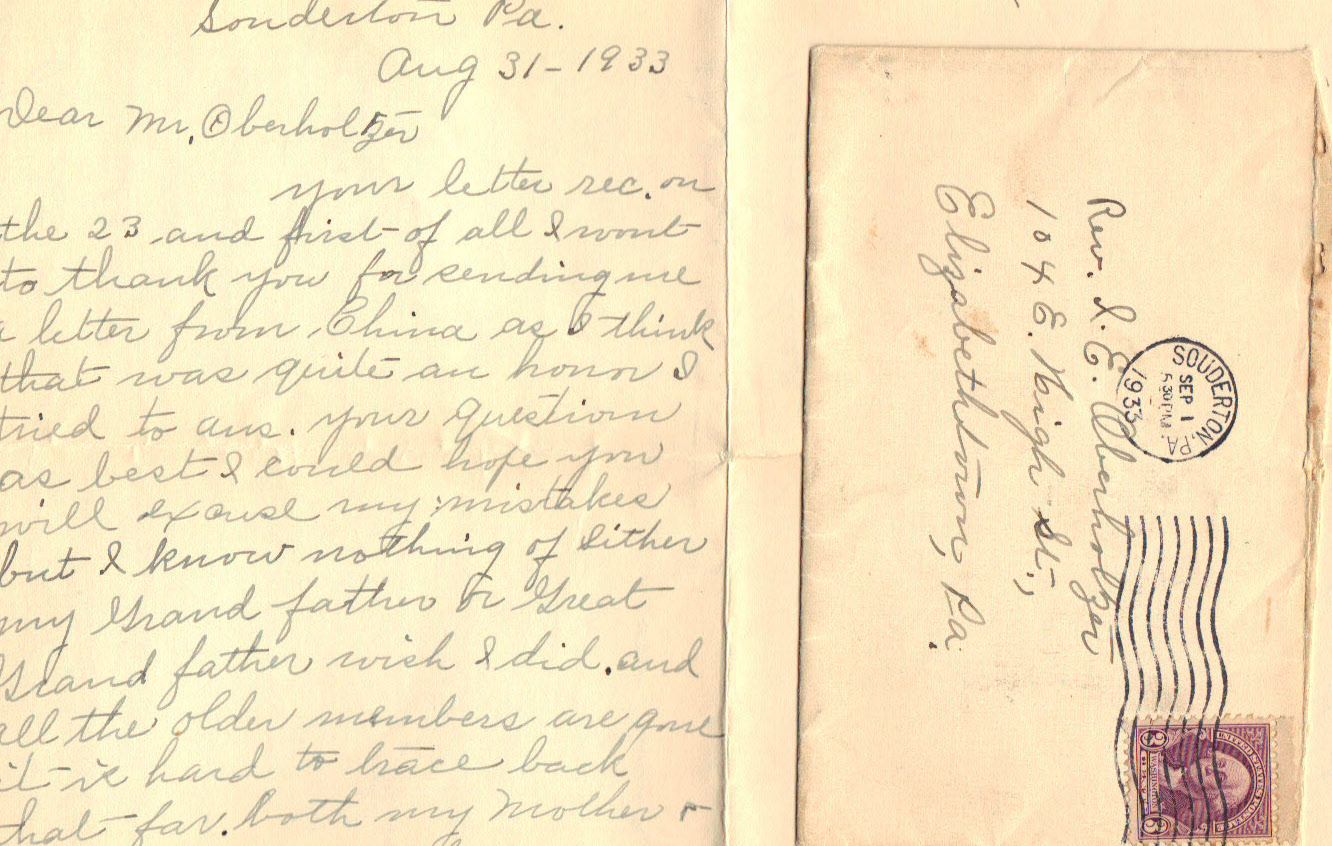 Souderton Pa.
Aug 31-1933
Dear Mr. Oberholtzer
your letter rec. on
the 23 and first of all I want
to thank you for sending me
a letter from China as I think
that was quite an honor I
tried to ans. your question
as best I could hope you
will excuse my mistakes
but I know nothing of Either
my Grand father or Great
Grand father wish I did. and
all the older members are gone
it is hard to trace back
that far. both my Mother
Rev. I. E. Oberholtzer
104 E. High St.,
Elizabethtown, Pa.
SOUDERTON, PA.
SEP 1
6 30 PM
1933
UNITED STATES POSTAGE
WASHINGTON
3 3